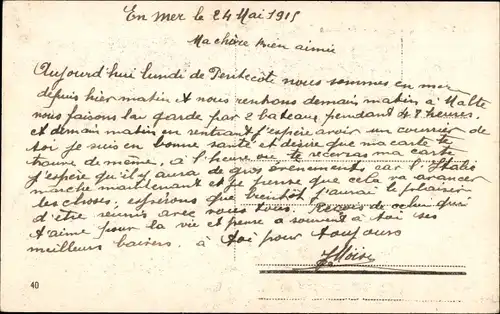 En mer le 24 Mai 1915
Ma chère bien aimée
Aujourd'hui lundi de Pentecote nous sommes en mer
depuis hier matin et nous rentrons demain matin à Malte
nous faisons la garde par 2 bateaux pendant 48 heures.
et demain matin en rentrant j'espère avoir un courrier de
toi je suis en bonne santé et désire que ma carte te
trouve de même, à l'heure ou te recevras ma carte
j'espère qu'il y aura de gros evenements car l'Italie
marche maintenant et je pense que cela va avancer
les choses, espérons que bientôt j'aurai le plaisir
d'être reunis avec vous tous. Reçois de celui qui
t'aime pour la vie et pense a souvent à toi ses
meilleurs baisers. à toi pour toujours
40